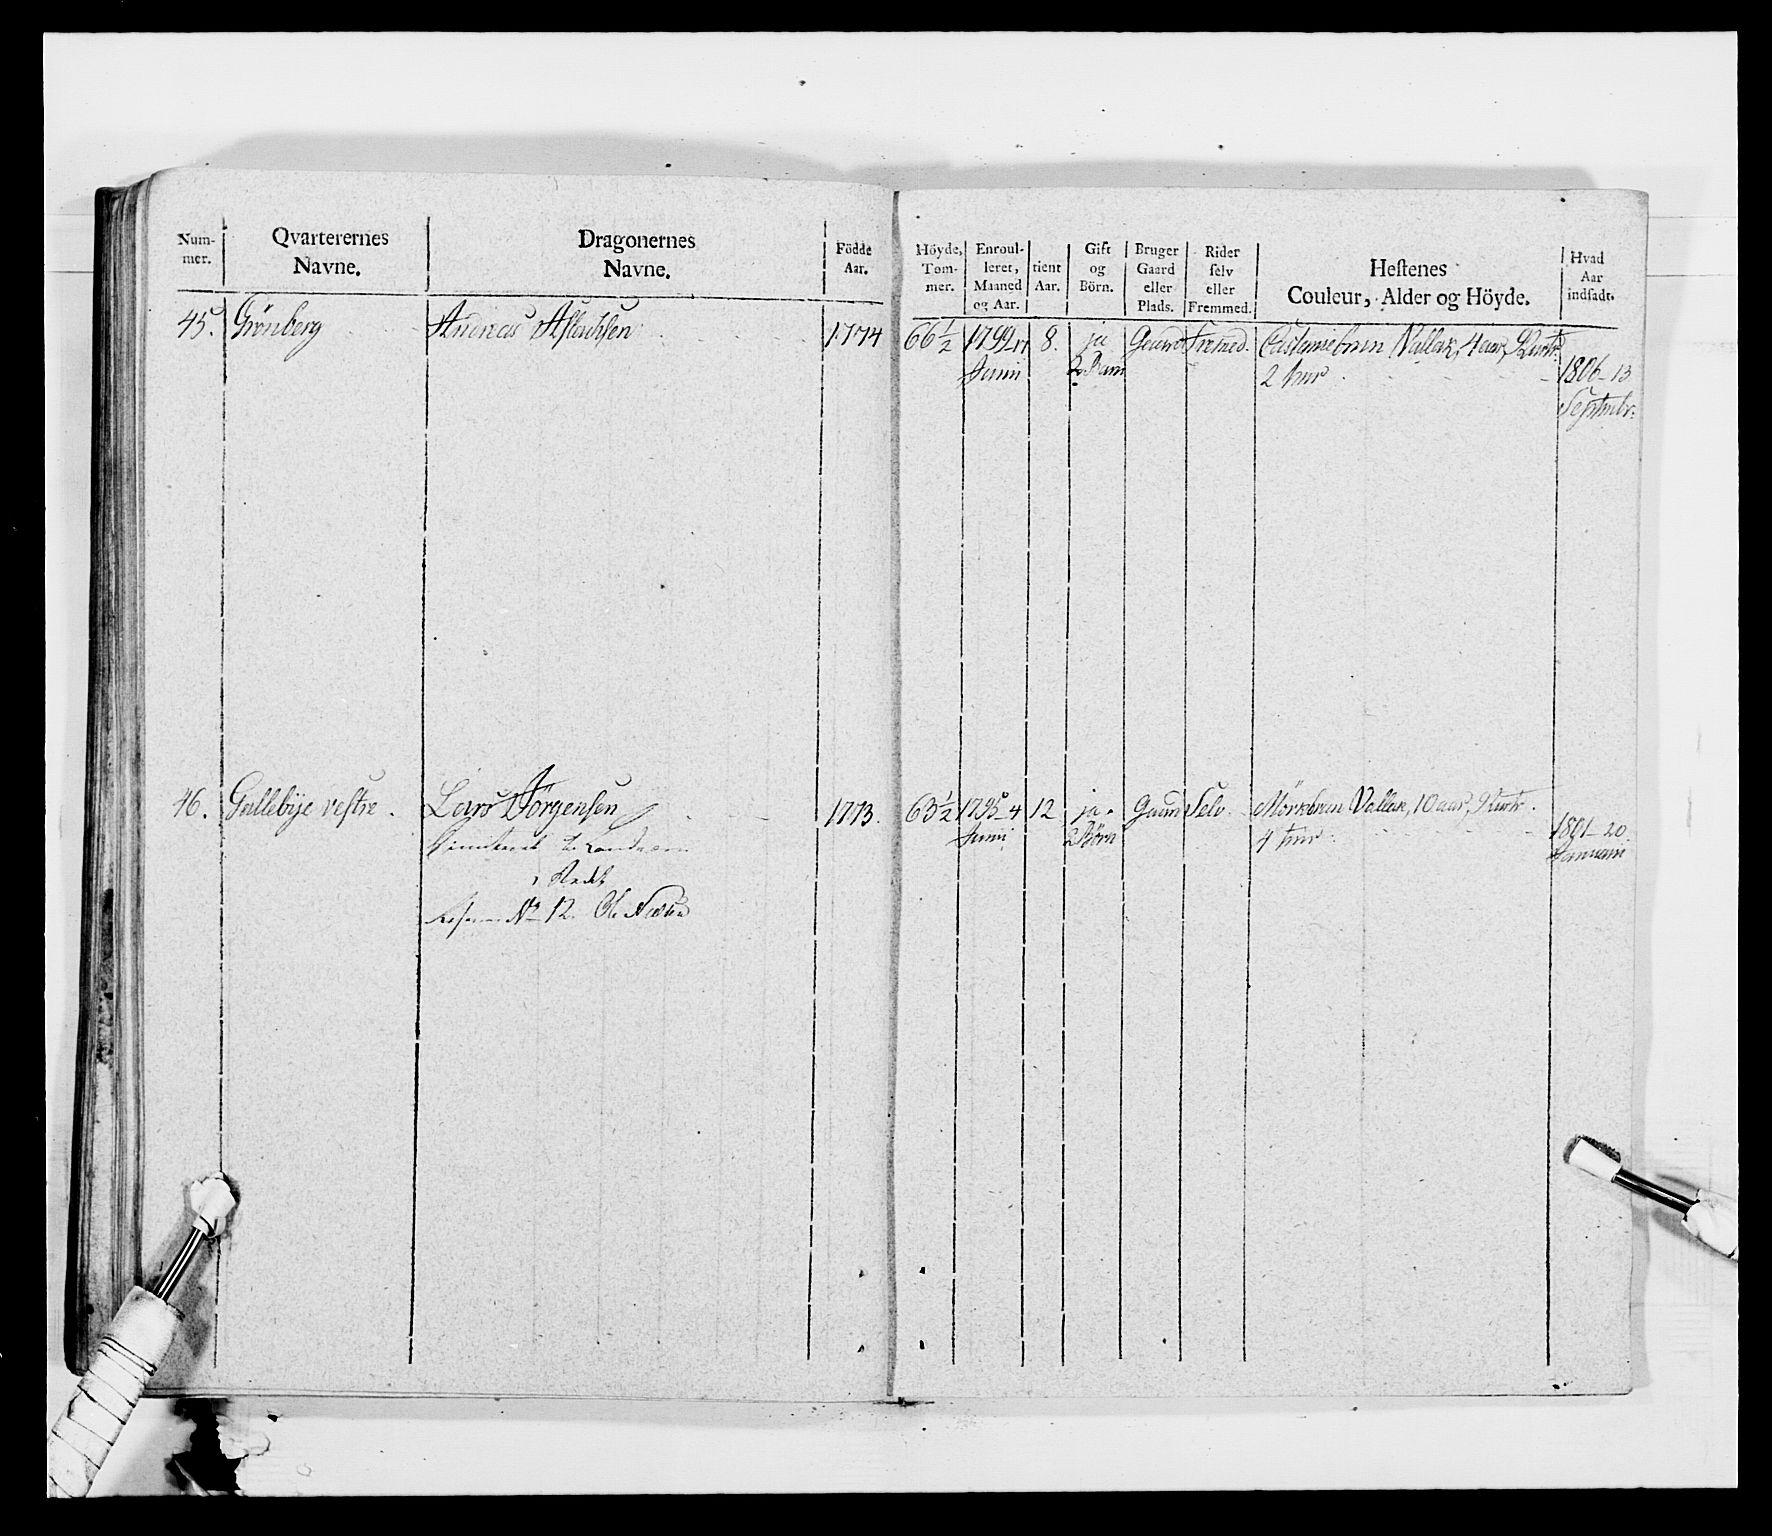 Num-
mer.
Qvarterernes
Navne.
Dragonernes
Navne.
Födde
Aar.
Höyde,
Tom-
mer.
Enroul-
leret,
Maaned
og Aar.
tient
Aar.
Gift
og
Börn.
Bruger
Gaard
eller
Plads.
Rider
selv
eller
Fremmed.
Hestenes
Couleur, Alder og Höyde.
Hvad
Aar
indsadt.
45. Grönberg Andreas Aslachsen 1774 66 1/2 1799 8. ja Gaard Fremed. Castaniebrun Vallak, 4 aar, 9 Qvart:
Junii 2 Barn 2 tm̄r 1806-13
Septembr:
46. Gallebÿe vestre. Lars Jörgensen 1773. 63 1/2 1795-4 12 ja. Gaard Selv. Mörkbrun Vallak, 10 aar, 9 Qvartr.
Junii 2 Börn 4 tm̄r 1801-20
Januarii
No 12. Ole